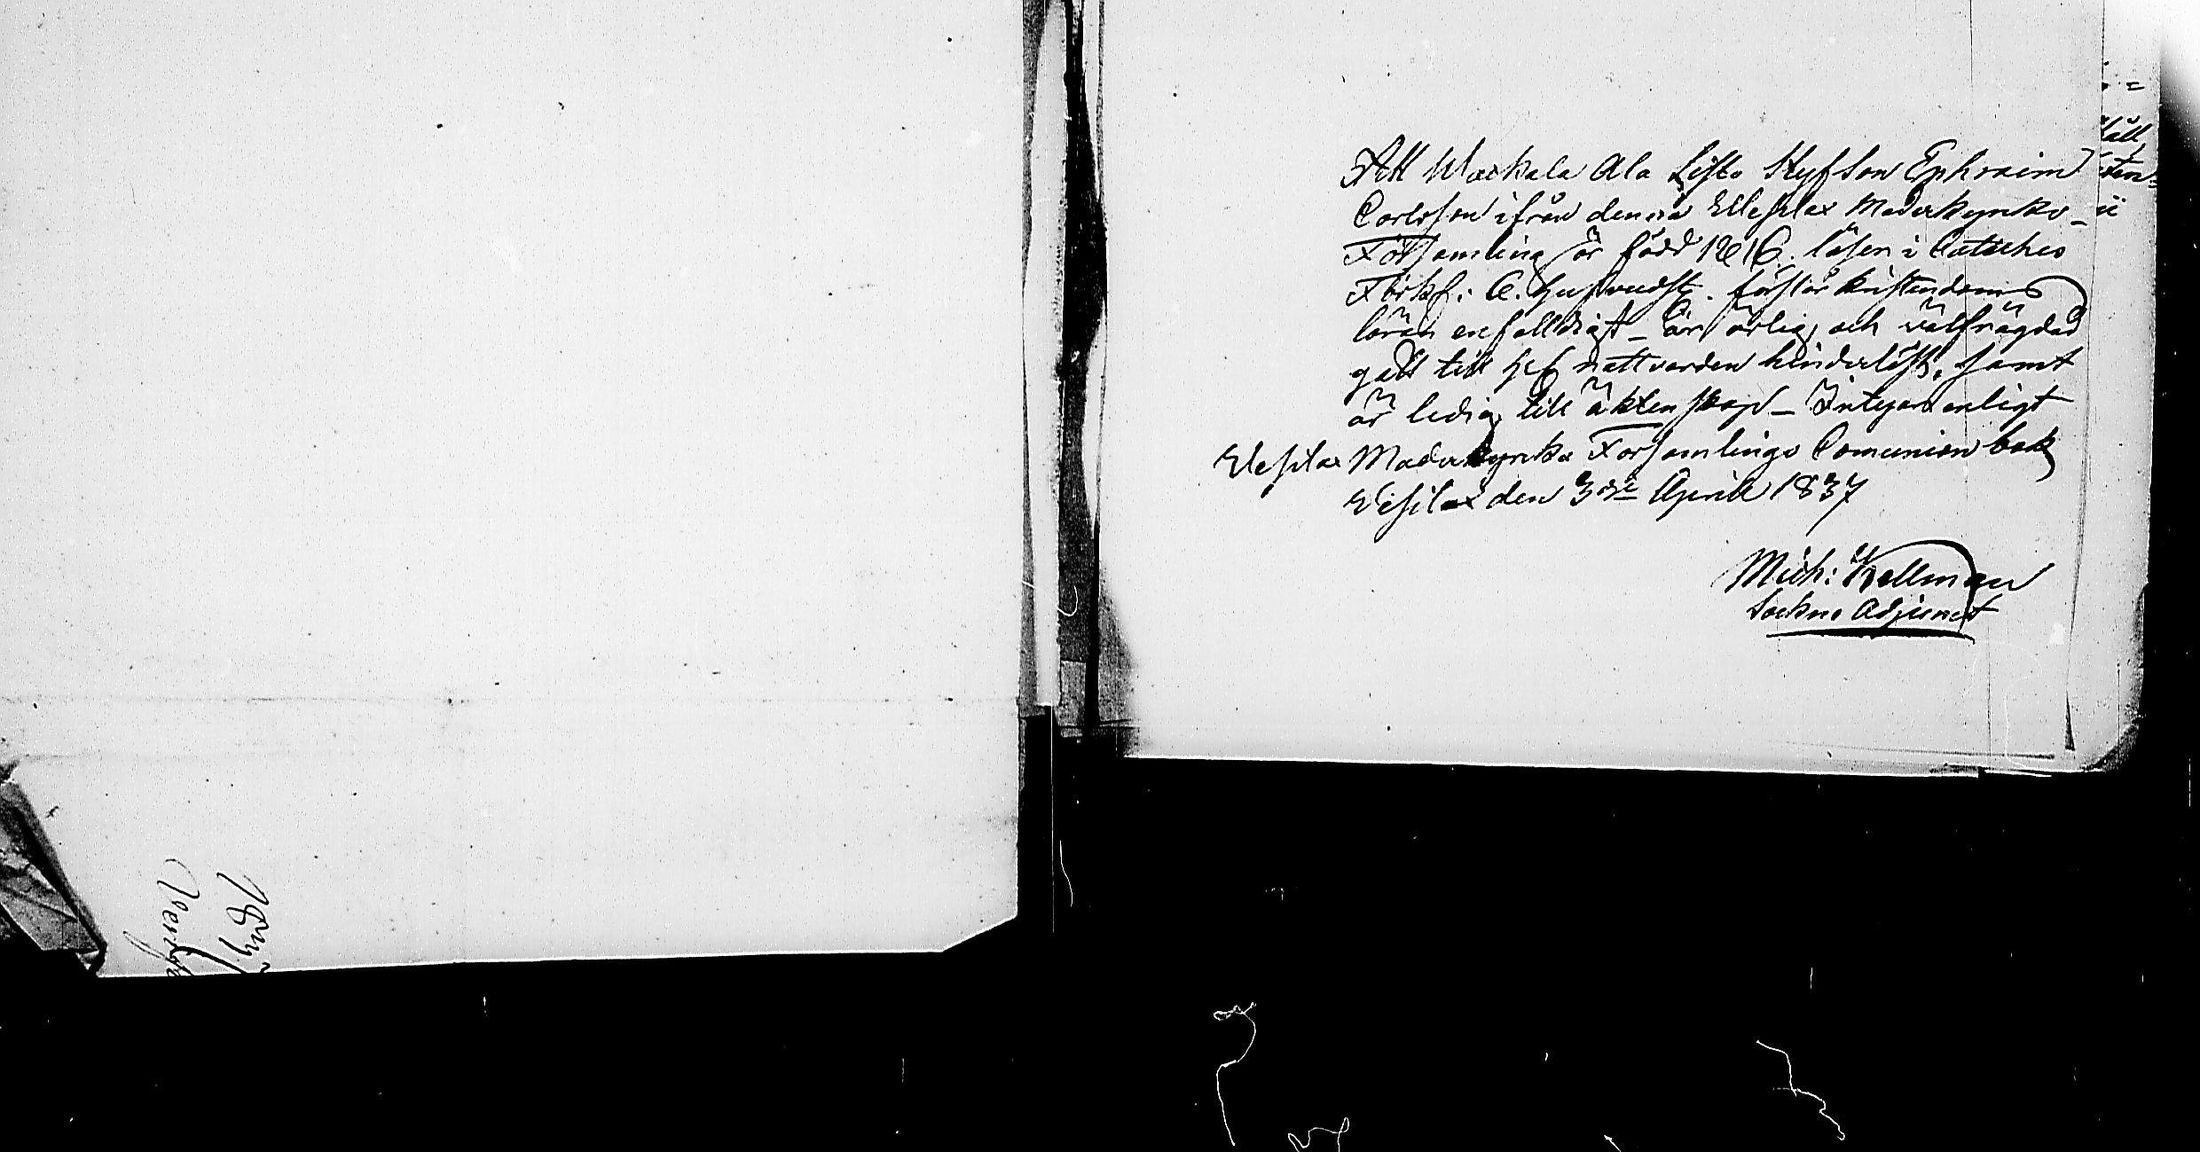 Att Mackala Ala Sifto Styfson Ephraim
Carlsson ifrån denna Wesilax Moderkyrko-
Församling är född 1816. läser i Catches
Förkl: A. försvarl. förstår kristendoms
läran enfalldigt - är ärlig och välfrägdad
gått till H. nattvarden hinderlöst, samt
är ledig till äktenskap - Intygar enligt
Wesilax Moderkyrko Församlings Comunion bok
Wesilax den 3die April 1837
Mich: Kellman
Sockne Adjunct
1837